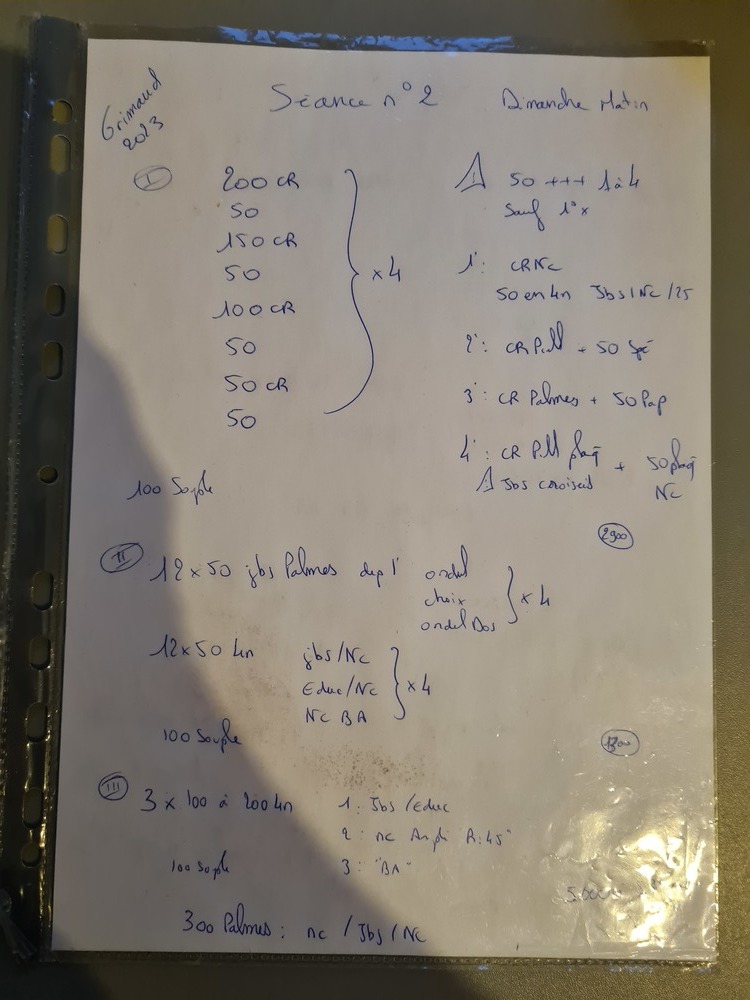 Grimaud
2023
Séance n° 2
Dimanche Matin
I
200 CR
50
150 CR
50
100 CR
50
50 CR
50
x 4
100 Souple
⚠ 50 +++ 1 à 4
Sauf 1° x
1': CR Nc
50 en 4n Jbs / Nc /25
2': CR Pull + 50 Spé
3': CR Palmes + 50 Pap
4': CR Pull plaq + 50 plaq
⚠ Jbs croisées Nc
2900
II 12 x 50 jbs Palmes dep 1' ondul
choix
ondul Dos
x 4
12 x 50 4n jbs/Nc
Educ/Nc
Nc BA
x 4
100 Souple
1300
III 3 x 100 à 200 4n 1: Jbs / Educ
2: nc Ampli R: 45"
100 Souple 3: "BA"
300 Palmes: nc / Jbs / Nc